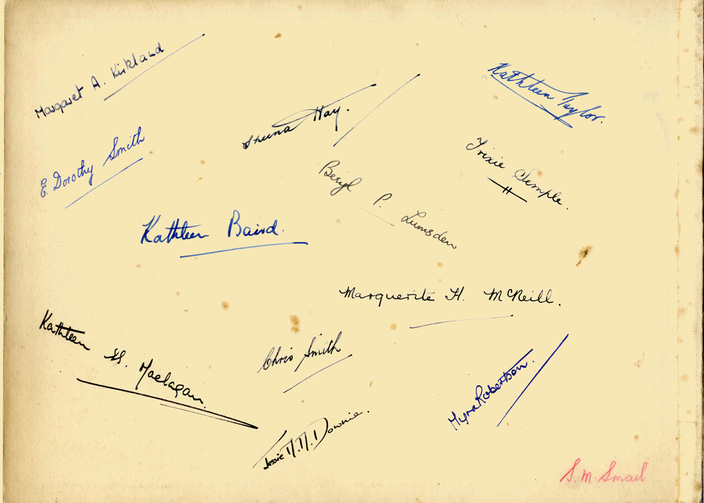 Margaret A. Kirkland
Kathleen Taylor.
Sheena Hay.
E. Dorothy Smith
Trixie Temple.
Beryl P. Lumsden
Kathleen Baird.
Marguerite H. McNeill.
Kathleen M. Maclagan.
Chris Smith
Myra Robertson.
Jessie M. M. Downie.
S. M. Smail